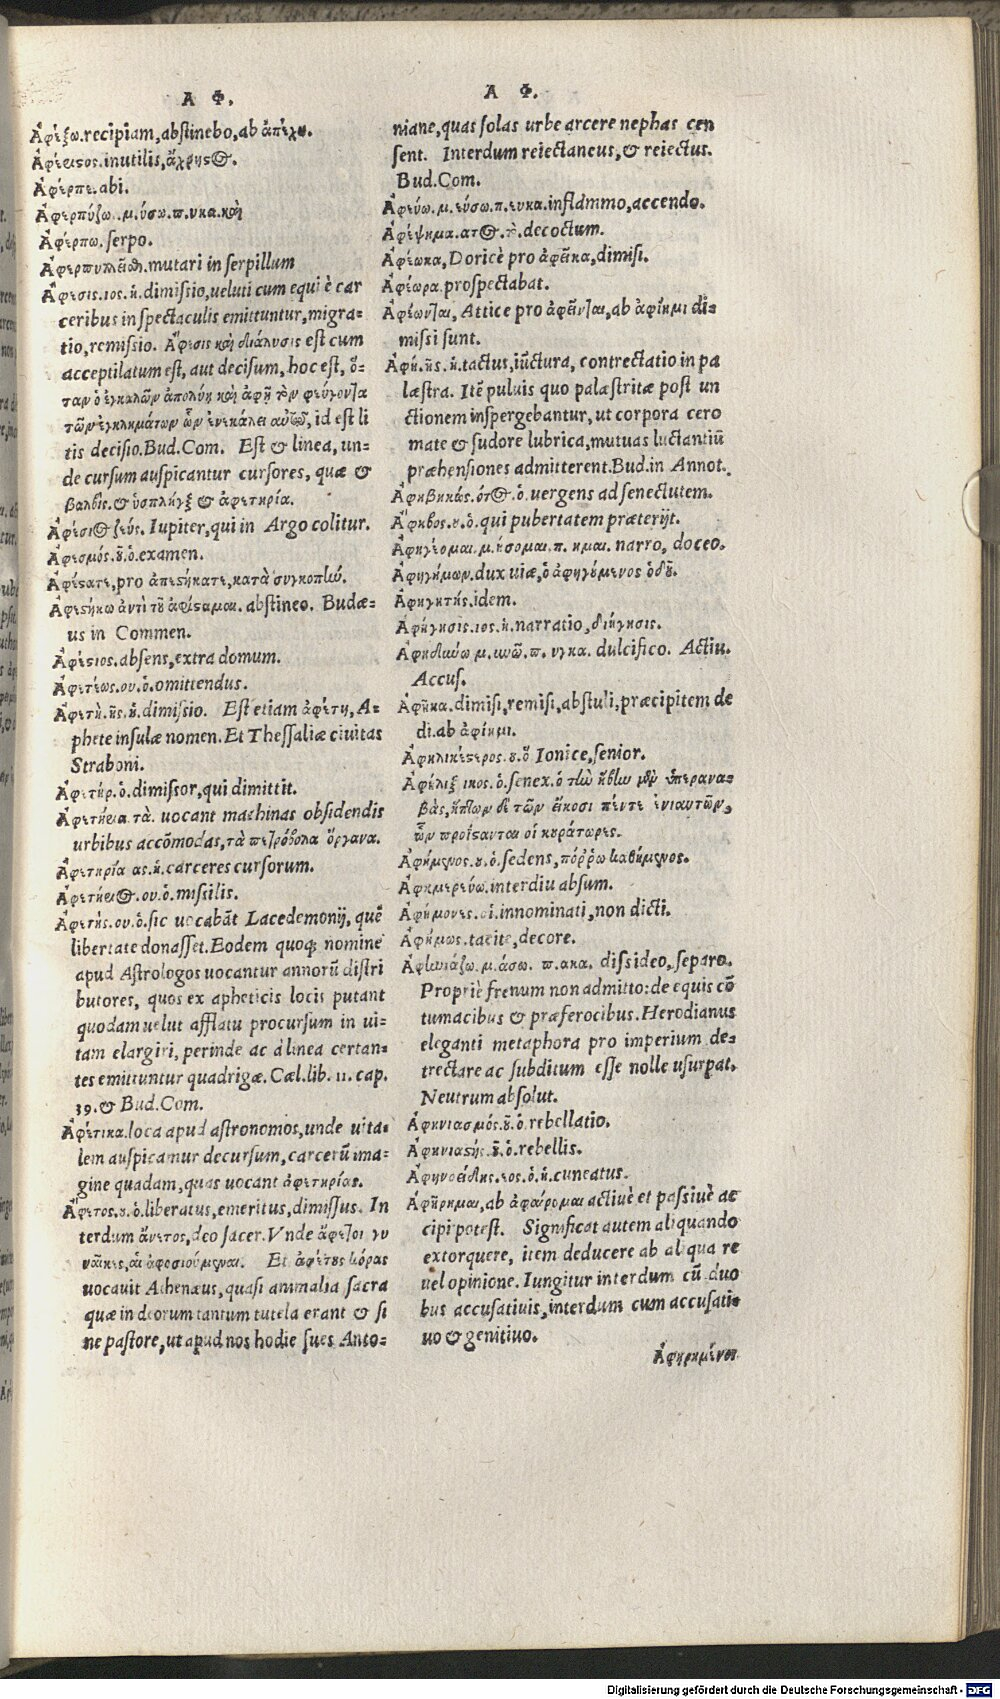 Α Φ.
Ἀφέξω.recipiam,abstinebo,ab ἀπέχω.
Ἀφέωστος.inutilis,ἄχρηστος.
Ἀφέρπε.abi.
Ἀφερπύζω.μ.ύσω.π.υκα.καὶ
Ἀφέρπω.serpo.
mutari in serpillum
Ἀφεσις.ιος.ἡ.dimissio,ueluti cum equi è car
ceribus in spectaculis emittuntur,migra=
tio,remissio. Ἄφεσις καὶ διάλυσις est cum
acceptilatum est, aut decisum, hoc est, ὅ=
ταν ὁ ἐγκαλῶν ἀπολύῃ καὶ ἀφῇ τὸν φεύγοντα
τῶν ἐγκλημάτων ὧν ἐνεκάλει αὐτῷ, id est li
tis decisio.Bud.Com. Est & linea, un=
de cursum auspicantur cursores, quæ &
βαλβὶς.& ὑσπλήγξ & ἀφετηρία.
Ἀφέσιος ζεύς. Iupiter,qui in Argo colitur.
Ἀφεσμός.οῦ.ὁ.examen.
Ἀφέστατε,pro ἀπεστήκατε,κατὰ συγκοπὴν.
Ἀφεστήκω ἀντὶ τοῦ ἀφίσταμαι. abstineo. Budæ=
us in Commen.
Ἀφέστιος.absens,extra domum.
Ἀφετέως.ου.ὁ.omittendus.
Ἀφετὴ.ῆς.ἡ.dimissio. Est etiam ἀφέτη, A=
phete insulæ nomen. Et Thessaliæ ciuitas
Straboni.
Ἀφετήρ.ὁ.dimissor,qui dimittit.
Ἀφετήεια τὰ. uocant machinas obsidendis
urbibus accõmodas,τὰ πετρόβολα ὄργανα.
Ἀφετηρία ας.ἡ.carceres cursorum.
Ἀφετήειος.ου.ὁ.missilis.
Ἀφετής.ου.ὁ.sic uocabãt Lacedemonij, quẽ
libertate donasset.Eodem quoq; nomine
apud Astrologos uocantur annorũ distri
butores, quos ex apheticis locis putant
quodam uelut afflatu procursum in ui=
tam elargiri, perinde ac à linea certan=
tes emittuntur quadrigæ. Cæl.lib. 11. cap.
39.& Bud.Com.
Ἀφέτικα.loca apud astronomos,unde uita=
lem auspicamur decursum,carcerũ ima=
gine quadam,quas uocant ἀφετηρίας.
Ἄφετος.ου.ὁ.liberatus,emeritus,dimissus. In
terdum ἄνετος,deo sacer.Vnde ἄφετοι γυ
ναῖκες,αἱ ἀφοσιούμεναι. Et ἀφέτους κόρας
uocauit Athenæus, quasi animalia sacra
quæ in deorum tantum tutela erant & si
ne pastore, ut apud nos hodie sues Anto=
Α Φ.
niane,quas solas urbe arcere nephas cen
sent. Interdum reiectaneus,& reiectus.
Bud.Com.
Ἀφεύω.μ.εύσω.π.ευκα.inflãmmo,accendo.
Ἀφέψημα.ατος.τὸ.decoctum.
Ἀφέωκα,Doricè pro ἀφεῖκα,dimisi.
Ἀφέωρα.prospectabat.
Ἀφέωνται, Attice pro ἀφεῖνται,ab ἀφίημι di=
missi sunt.
Ἀφή.ῆς.ἡ.tactus,iũctura, contrectatio in pa
læstra. Itẽ puluis quo palæstritæ post un
ctionem inspergebantur,ut corpora cero
mate & sudore lubrica,mutuas luctantiũ
præhensiones admitterent.Bud.in Annot.
Ἀφηβηκώς.ότος.ὁ.uergens ad senectutem.
Ἄφηβος.ου.ὁ.qui pubertatem præterijt.
Ἀφηγέομαι.μ.ήσομαι.π. ημαι. narro, doceo.
Ἀφηγήμων.dux uiæ,ὁ ἀφηγούμενος ὁδοῦ.
Ἀφηγητής.idem.
Ἀφήγησις.ιος.ἡ.narratio,διήγησις.
Ἀφηδιαύω μ.υνῶ.π. υγκα. dulcifico. Actiu.
Accus.
Ἀφῆκα.dimisi,remisi,abstuli,præcipitem de
di.ab ἀφίημι.
Ἀφηλικέστερος.ου.ὁ Ionice,senior.
Ἀφέλιξ ικος.ὁ.senex.ὁ τὴν ἥβην μὲν ὑπεραναα=
βὰς,ἥττων δὲ τῶν εἴκοσι πέντε ἐνιαυτῶν,
ὧν προΐστανται οἱ κυράτωρες.
Ἀφήμενος.ου.ὁ.sedens,πόῤῥω καθήμενος.
Ἀφημερεύω.interdiu absum.
Ἀφήμονες.οἱ.innominati,non dicti.
Ἀφήμως.tacite,decore.
Ἀφηνιάζω.μ.άσω. π.ακα. dissideo,separo.
Propriè frenum non admitto:de equis cõ
tumacibus & præferocibus.Herodianus
eleganti metaphora pro imperium de=
trectare ac subditum esse nolle usurpat.
Neutrum absolut.
Ἀφηνιασμός.οῦ.ὁ.rebellatio.
Ἀφηνιαστής.οῦ.ὁ.rebellis.
Ἀφηνοειδής.εος.ὁ.ἡ.cuneatus.
Ἀφῄρημαι,ab ἀφαίρομαι actiuè et passiuè ac
cipi potest. Significat autem aliquando
extorquere, item deducere ab aliqua re
uel opinione. Iungitur interdum cũ duo
bus accusatiuis,interdum cum accusati=
uo & genitiuo.
Ἀφηρημένοι
Digitalisierung gefördert durch die Deutsche Forschungsgemeinschaft - DFG